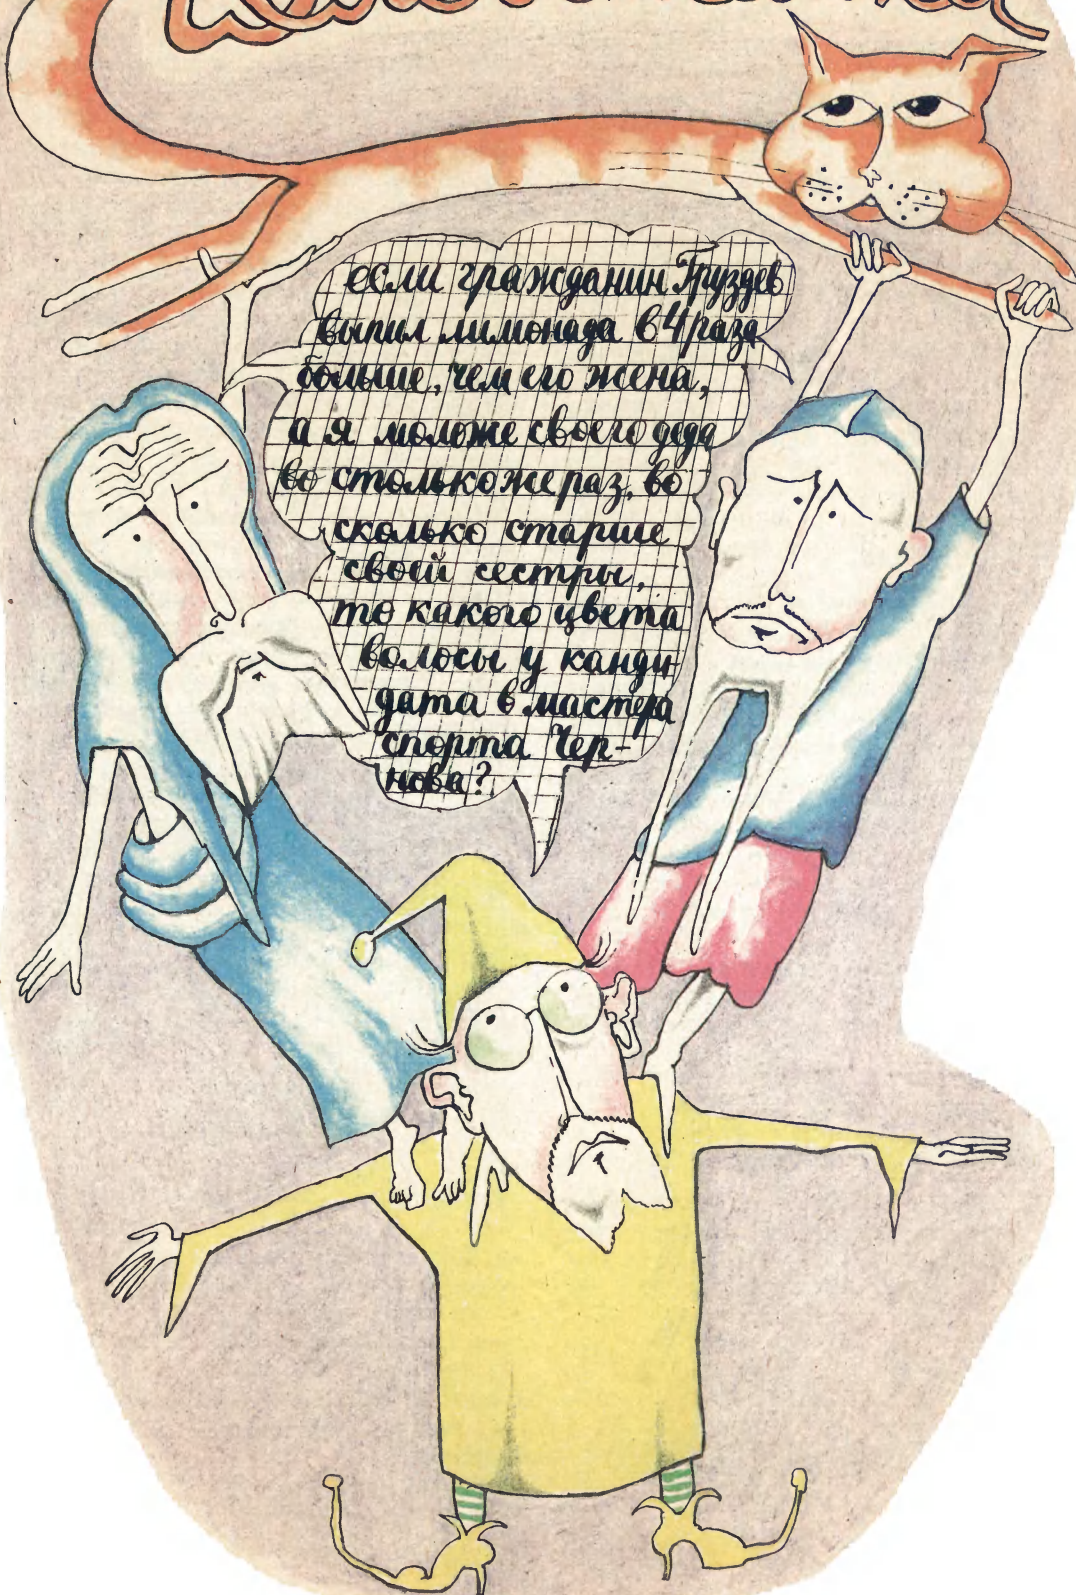 если гражданин Груздев
выпил лимонада в 4 раза
больше, чем его жена,
а я моложе своего деда
во столько же раз, во
сколько старше
своей сестры,
то какого цвета
волосы у канди-
дата в мастера
спорта Чер-
нова?